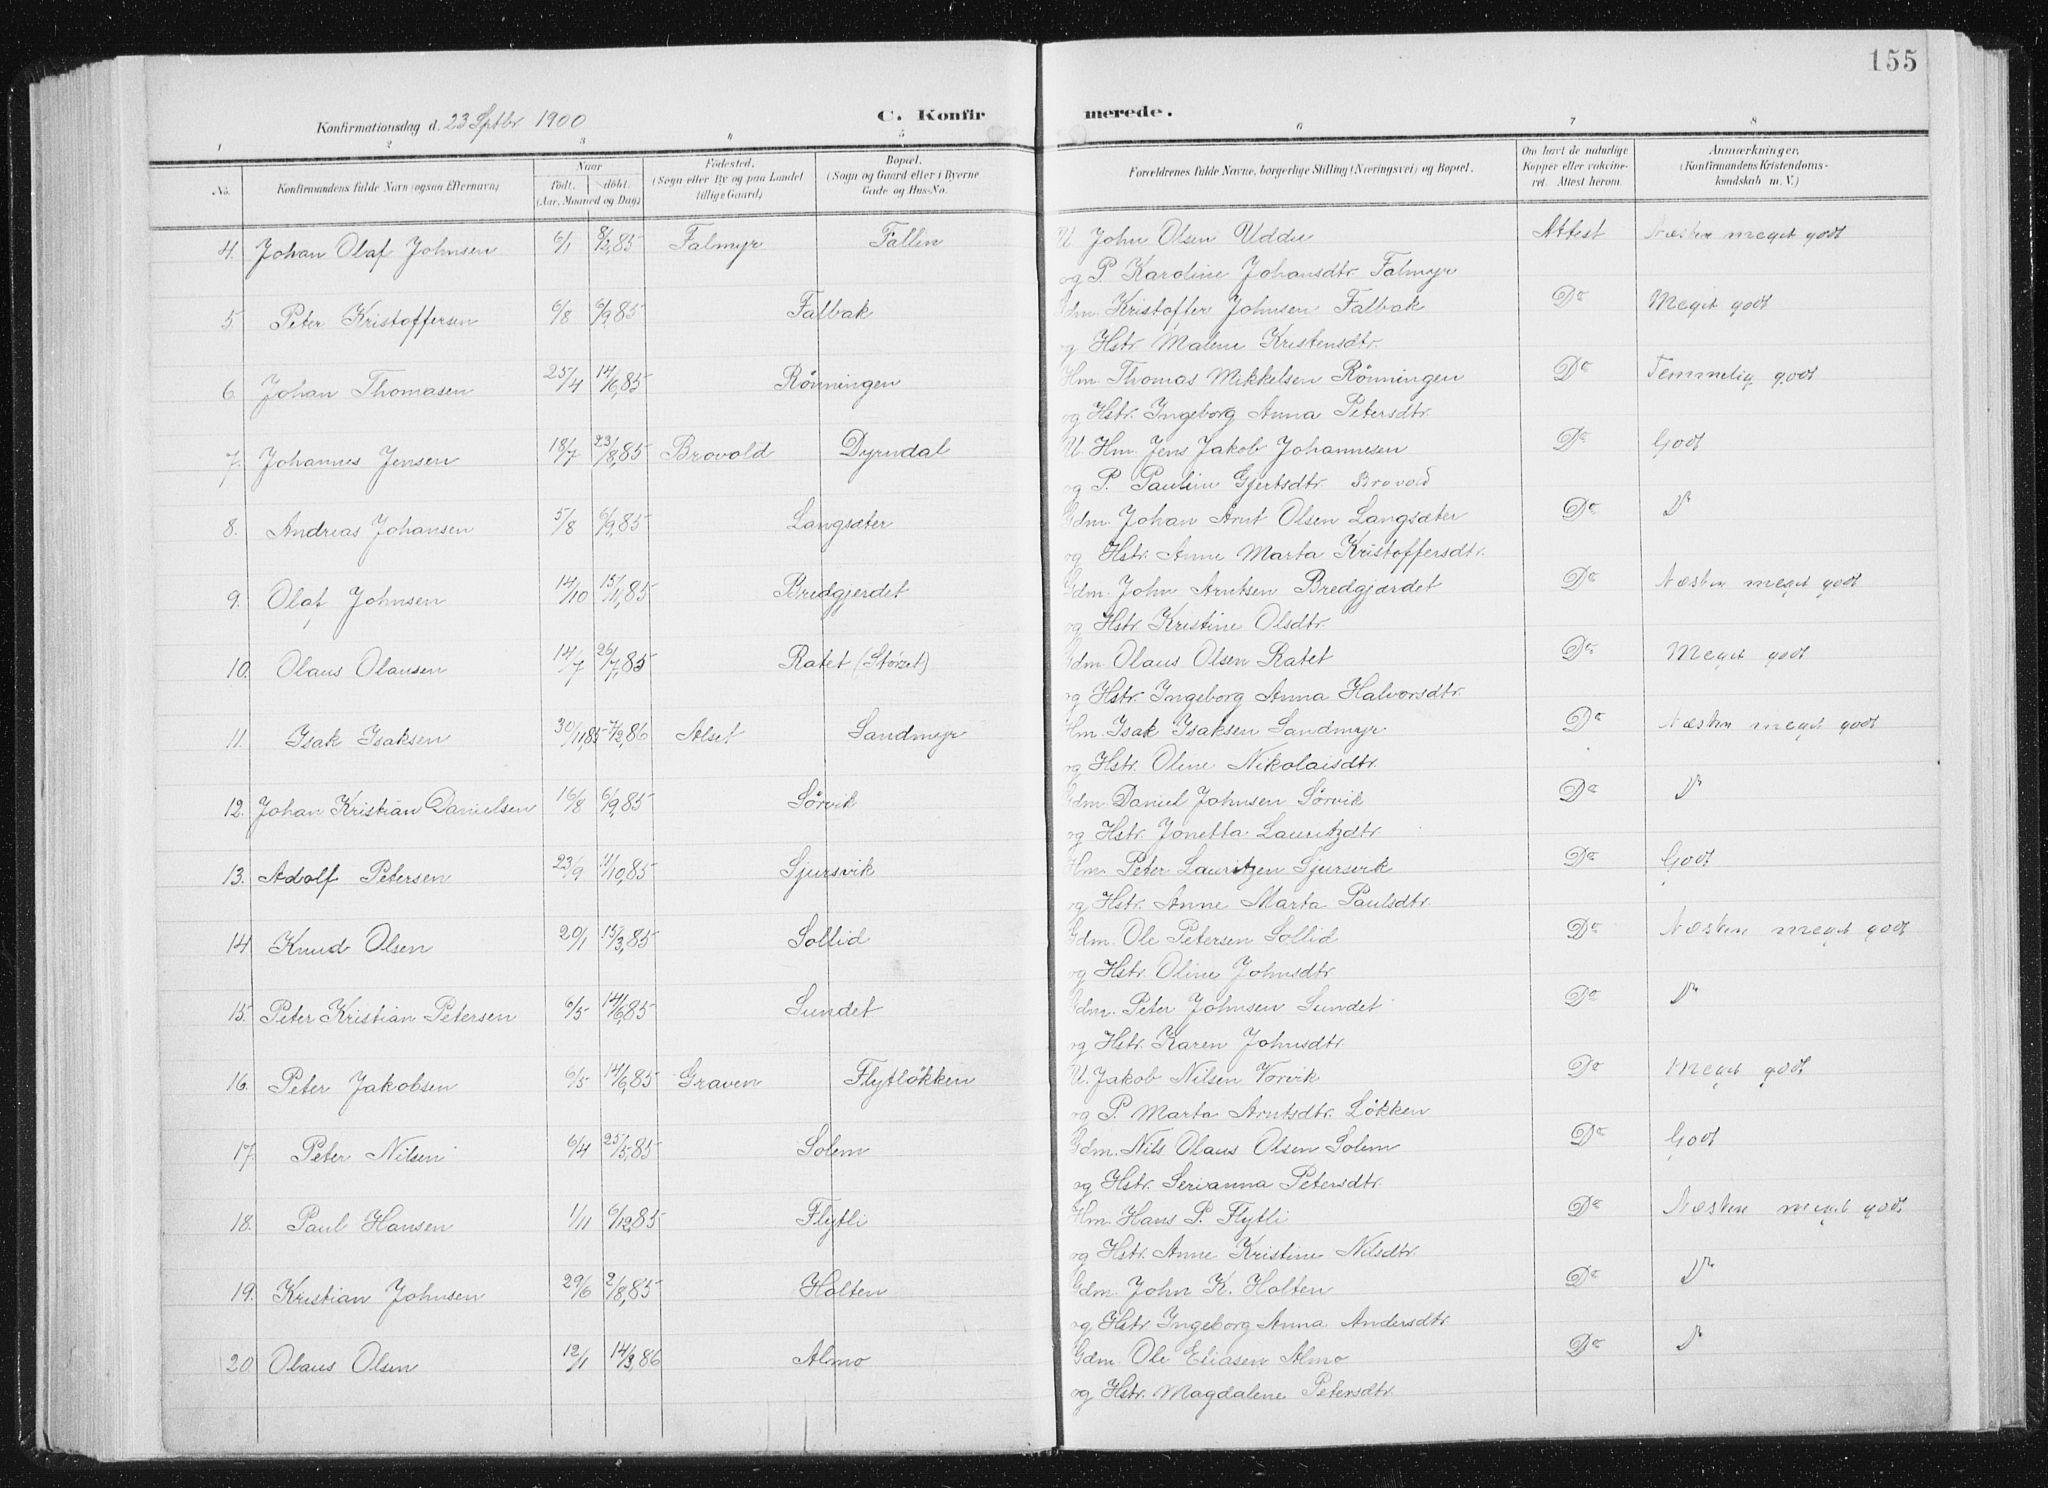 155
Konfirmationsdag d. 23 Septbr 1900 C. Konfirmerede.
1 2 3 4 5 6 7 8
No. Konfirmandens fulde Navn (ogsaa Efternavn) Naar født. døbt. (Aar, Maaned og Dag) Fødested. (Sogn eller By og paa Landet tillige Gaard) Bopæl. (Sogn og Gaard eller i Byerne Gade og Hus-No. Forældrenes fulde Navne, borgerlige Stilling (Næringsvei) og Bopæl. Om havt de naturlige Kopper eller vakcineret. Attest herom. Anmærkninger, (Konfirmandens Kristendomskundskab m. V.)
4. Johan Olaf Johnsen 6/1 8/2,85 Falmyr Fallin U. John Olsen Uddu Attest Næsten meget godt
og P. Karoline Johansdtr. Falmyr
5. Peter Kristoffersen 6/8 6/9,85 Falbak Gdm. Kristoffer Johnsen Falbak Do Meget godt
og Hstr. Malene Kristensdtr.
6. Johan Thomasen 25/4 14/6,85 Rönningen Hm. Thomas Mikkelsen Rönningen Do Temmelig godt
og Hstr. Ingeborg Anna Petersdtr.
7. Johannes Jensen 18/7 23/8,85 Brovold Dyrndal U. Hm. Jens Jakob Johannesen Do Godt
og P. Pauline Gjertsdtr. Brovold
8. Andreas Johansen 5/8 6/9,85 Langsæter Gdm. Johan Arnt Olsen Langsæter Do Do
og Hstr. Anne Marta Kristoffersdtr.
9. Olaf Johnsen 14/10 15/11,85 Bredgjerdet Gdm. John Arntsen Bredgjærdet Do Næsten meget godt
og Hstr. Kristine Olsdtr.
10. Olaus Olausen 14/7 26/7,85 Ratet (Störset) Gdm. Olaus Olsen Ratet Do Meget godt
og Hstr. Ingeborg Anna Halvorsdtr.
11. Isak Isaksen 30/11,85 7/2,86 Alset Sandmyr Hm. Isak Isaksen Sandmyr Do Næsten meget godt
og Hstr. Oline Nikolaisdtr.
12. Johan Kristian Danielsen 16/8 6/9,85 Sörvik Gdm. Daniel Johnsen Sörvik Do Do
og Hstr. Jonetta Lauritzdtr
13. Adolf Petersen 23/9 11/10,85 Sjursvik Hm. Peter Lauritzen Sjursvik Do Godt
og Hstr. Anne Marta Paulsdtr.
14 Knud Olsen 20/1 15/3,85 Sollid Gdm. Ole Petersen Sollid Do Næsten meget godt
og Hstr. Oline Johnsdtr
15. Peter Kristian Petersen 6/5 14/6,85 Sundet Gdm. Peter Johnsen Sundet Do Do
og Hstr. Karen Johnsdtr.
16. Peter Jakobsen 6/5 14/6,85 Graven Flytlökken U. Jakob Nilsen Vorvik Do Meget godt
og P. Marta Arntsdtr. Lökken
17. Peter Nilsen 6/4 25/5,85 Solem Gdm. Nils Olaus Olsen Solem Do Godt
og Hstr. Serianna Petersdtr.
18. Paul Hansen 1/11 6/12,85 Flytli Hm. Hans P. Flytli Do Næsten meget godt
og Hstr. Anne Kristine Nilsdtr.
19. Kristian Johnsen 29/6 2/8,85 Holten Gdm. John K. Holten Do Do
og Hstr. Ingeborg Anna Andersdtr.
20. Olaus Olsen 12/1 14/3,86 Almo Gdm. Ole Eliasen Almo Do Do
og Hstr. Magdalene Petersdtr.